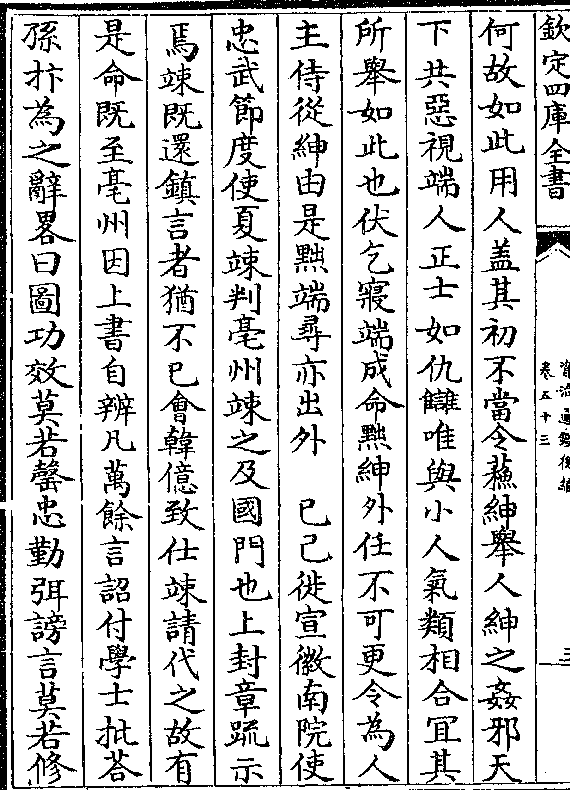 欽定四庫全書
資治通鑑後編
卷五十三
三
何故如此用人盖其初不當令蘇紳舉人紳之姦邪天
下共惡視端人正士如仇讎唯與小人氣類相合宜其
所舉如此也伏乞寢端成命黜紳外任不可更令為人
主侍從紳由是黜端尋亦出外　已己徙宣徽南院使
忠武節度使夏竦判亳州竦之及國門也上封章疏示
焉竦既還鎮言者猶不已會韓億致仕竦請代之故有
是命既至亳州因上書自辨凡萬餘言詔付學士批荅
孫抃為之辭畧曰圖功效莫若罄忠勤弭謗言莫若修